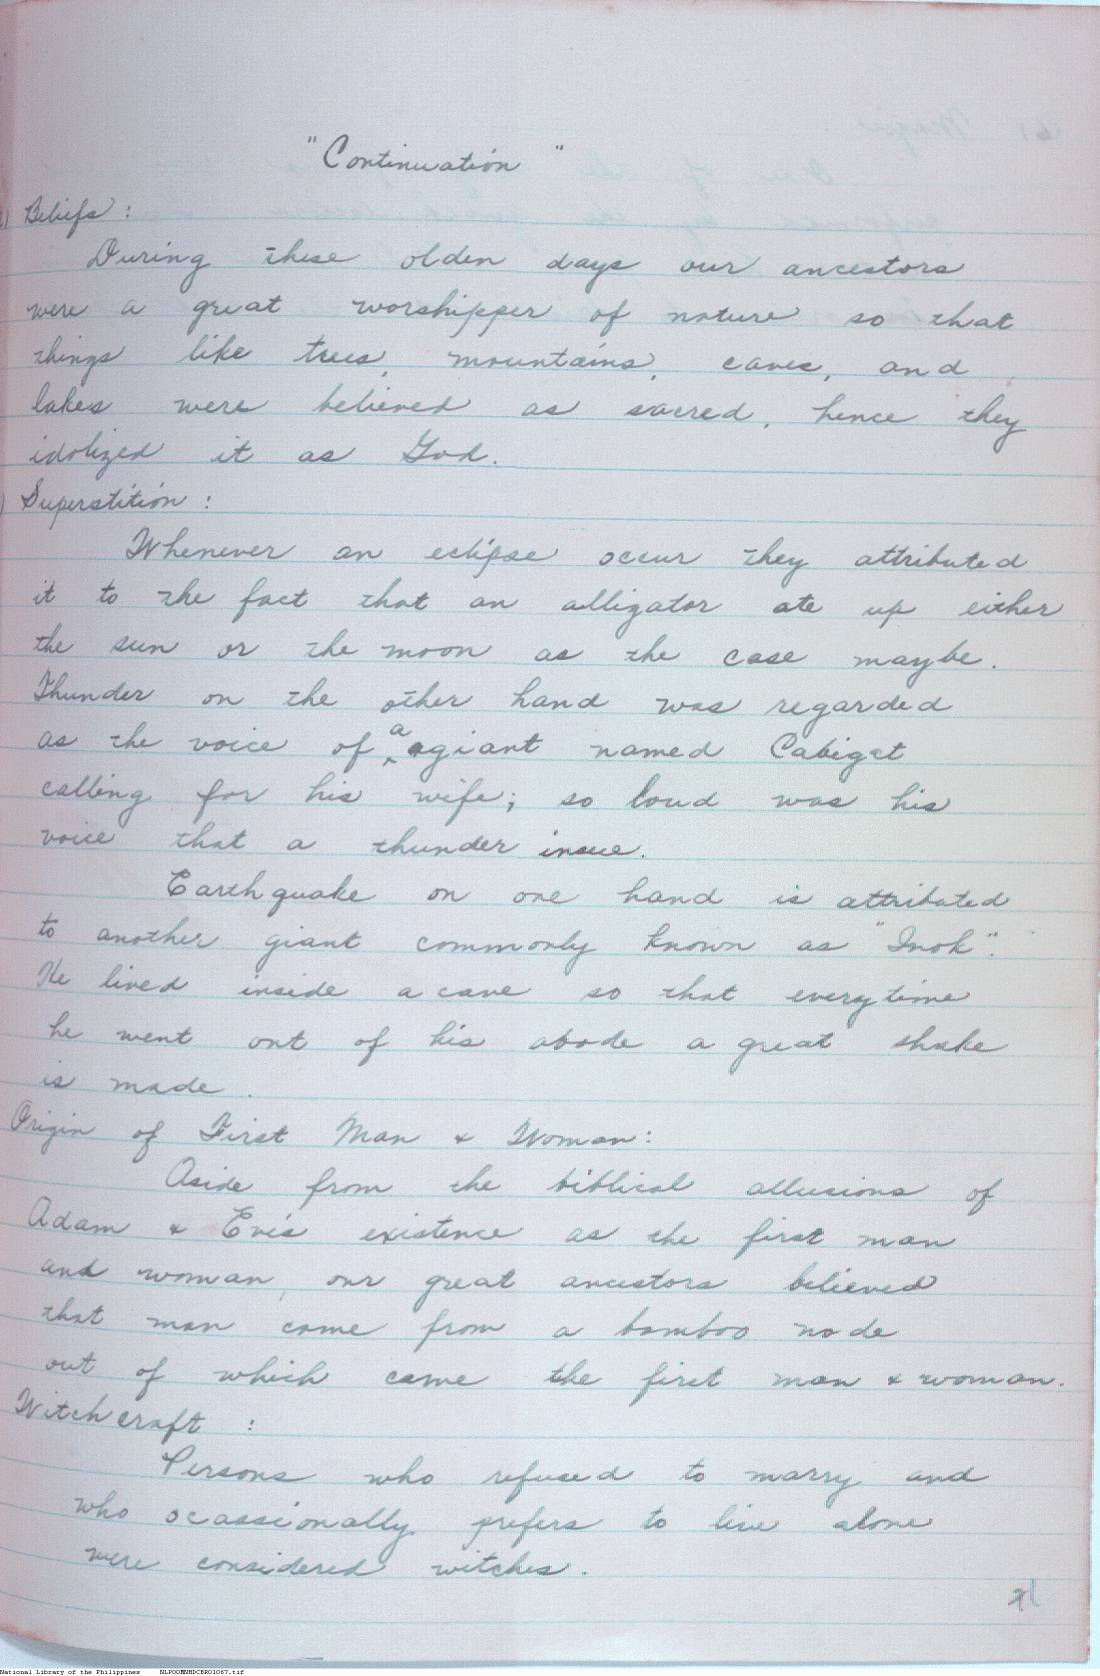 "Continuation"
) Beliefs :
During these olden days our ancestors
were a great worshipper of nature so that
things like trees, mountains, caves, and
lakes were believed as sacred, hence they
idolized it as God.
) Superstition :
Whenever an eclipse occur they attributed
it to the fact that an alligator ate up either
the sun or the moon as the case maybe.
Thunder on the other hand was regarded
as the voice of a giant named Cabigat
calling for his wife; so loud was his
voice that a thunder insue.
Earthquake on one hand is attributed
to another giant commonly known as "Inok".
He lived inside a cave so that everytime
he went out of his abode a great shake
is made.
Origin of First Man & Woman:
Aside from the biblical allusions of
Adam & Eve's existence as the first man
and woman, our great ancestors believed
that man come from a bamboo node
out of which came the first man & woman.
Witchcraft :
Persons who refused to marry and
who ocassionally prefers to live alone
were considered witches.
National Library of the Philippines NLPOOMNHDCBR01067.tif